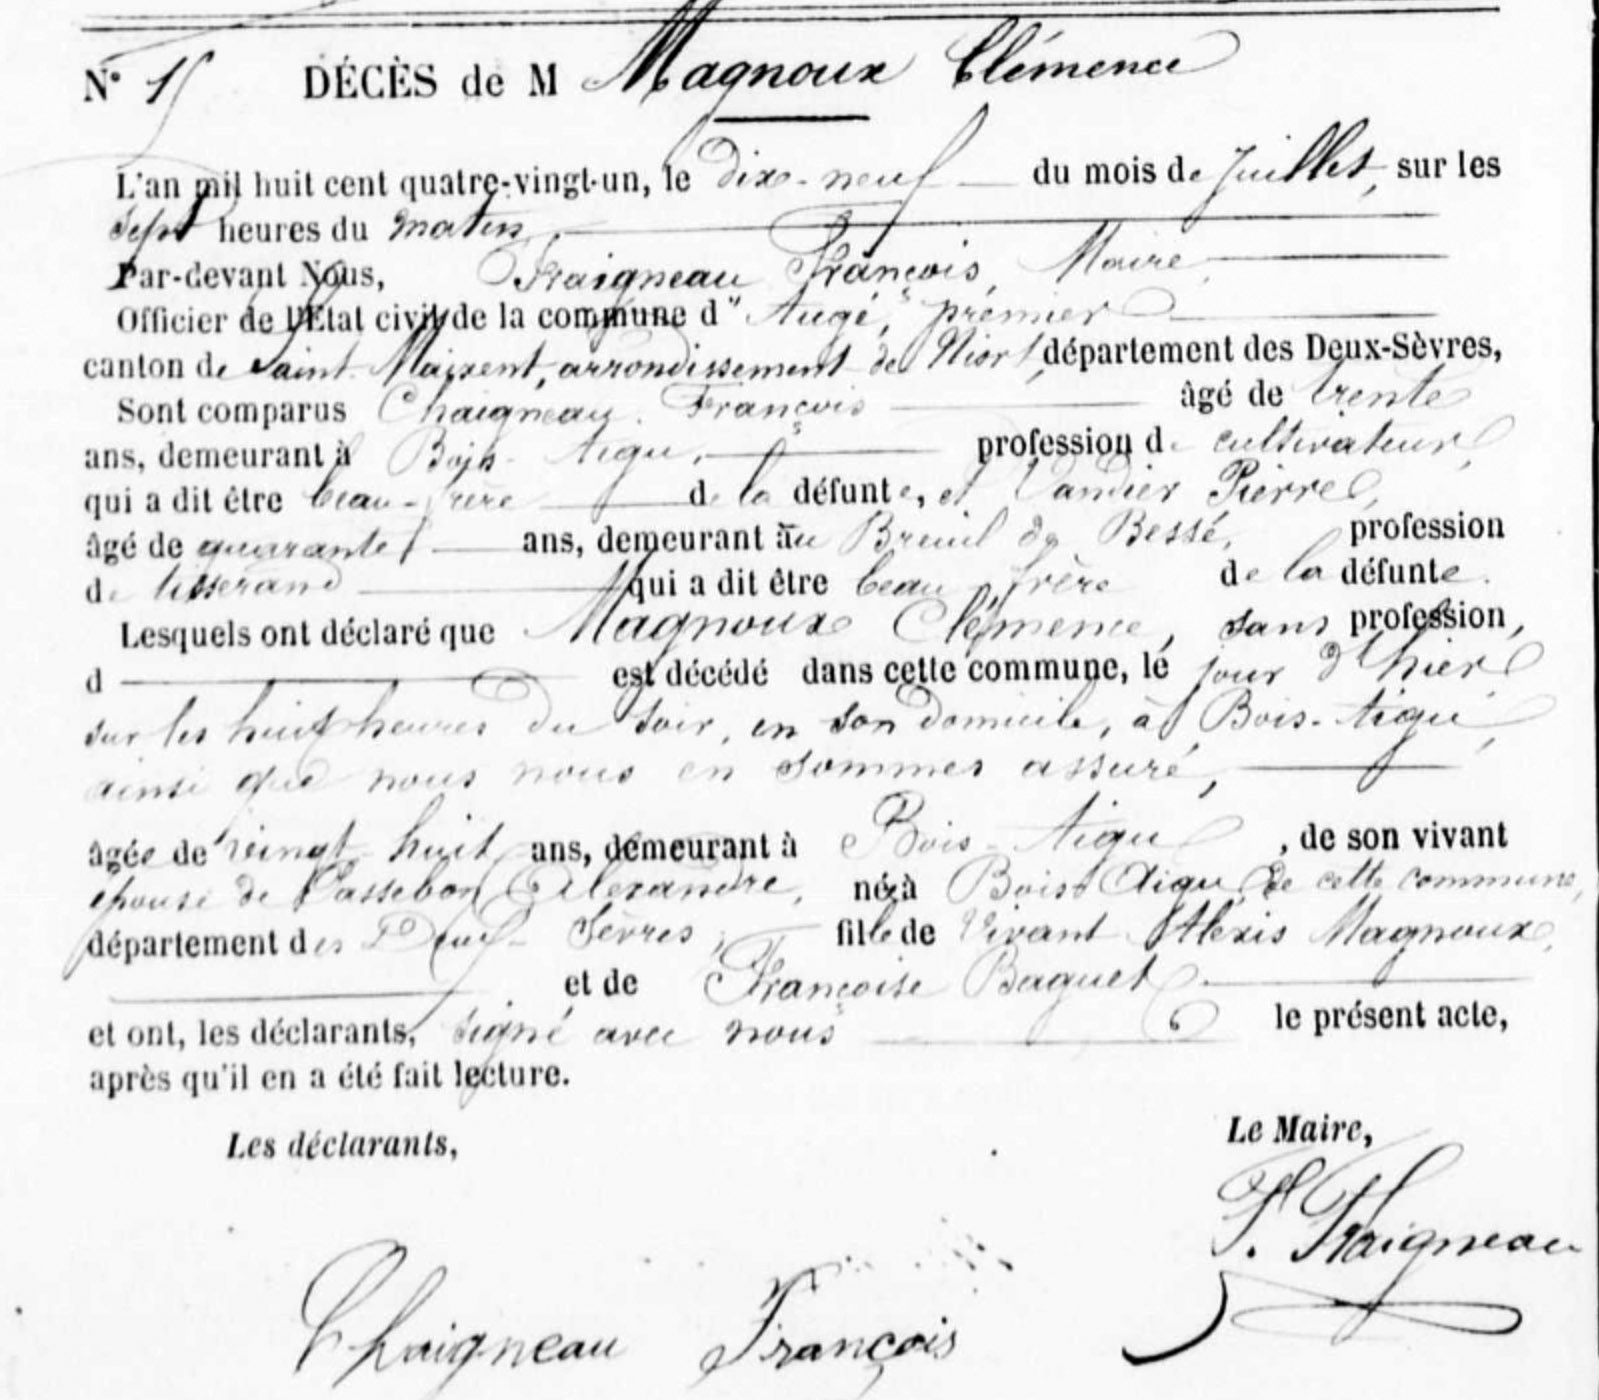 N° 15 DÉCÈS de M Magnoux Clémence
L'an mil huit cent quatre-vingt-un, le dix-neuf du mois de Juillet, sur les
sept heures du matin,
Par-devant Nous, Fraigneau François, Maire
Officier de l'Etat civil de la commune d'' Augé, premier
canton de Saint-Maixent, arrondissement de Niort, département des Deux-Sèvres,
Sont comparus Chaigneau François âgé de trente
ans, demeurant à Bois-Aigu, profession de cultivateur,
qui a dit être beau-frère de la défunte, et Vandier Pierre,
âgé de quarante ans, demeurant au Breuil de Bessé, profession
de tisserand qui a dit être beau-frère de la défunte.
Lesquels ont déclaré que Magnoux Clémence, sans profession,
d est décédé dans cette commune, le jour d'hier
sur les huit heures du soir, en son domicile, à Bois-Aigu,
ainsi que nous nous en sommes assuré,
âgée de vingt-huit ans, demeurant à Bois-Aigu, de son vivant
épouse de Passebon Alexandre, née à Bois-Aigu, de cette commune,
département des Deux-Sèvres, fille de vivant Alexis Magnoux,
et de Françoise Baguet
et ont, les déclarants, signé avec nous le présent acte,
après qu'il en a été fait lecture.
Les déclarants,
Le Maire,
F. Fraigneau
Chaigneau François